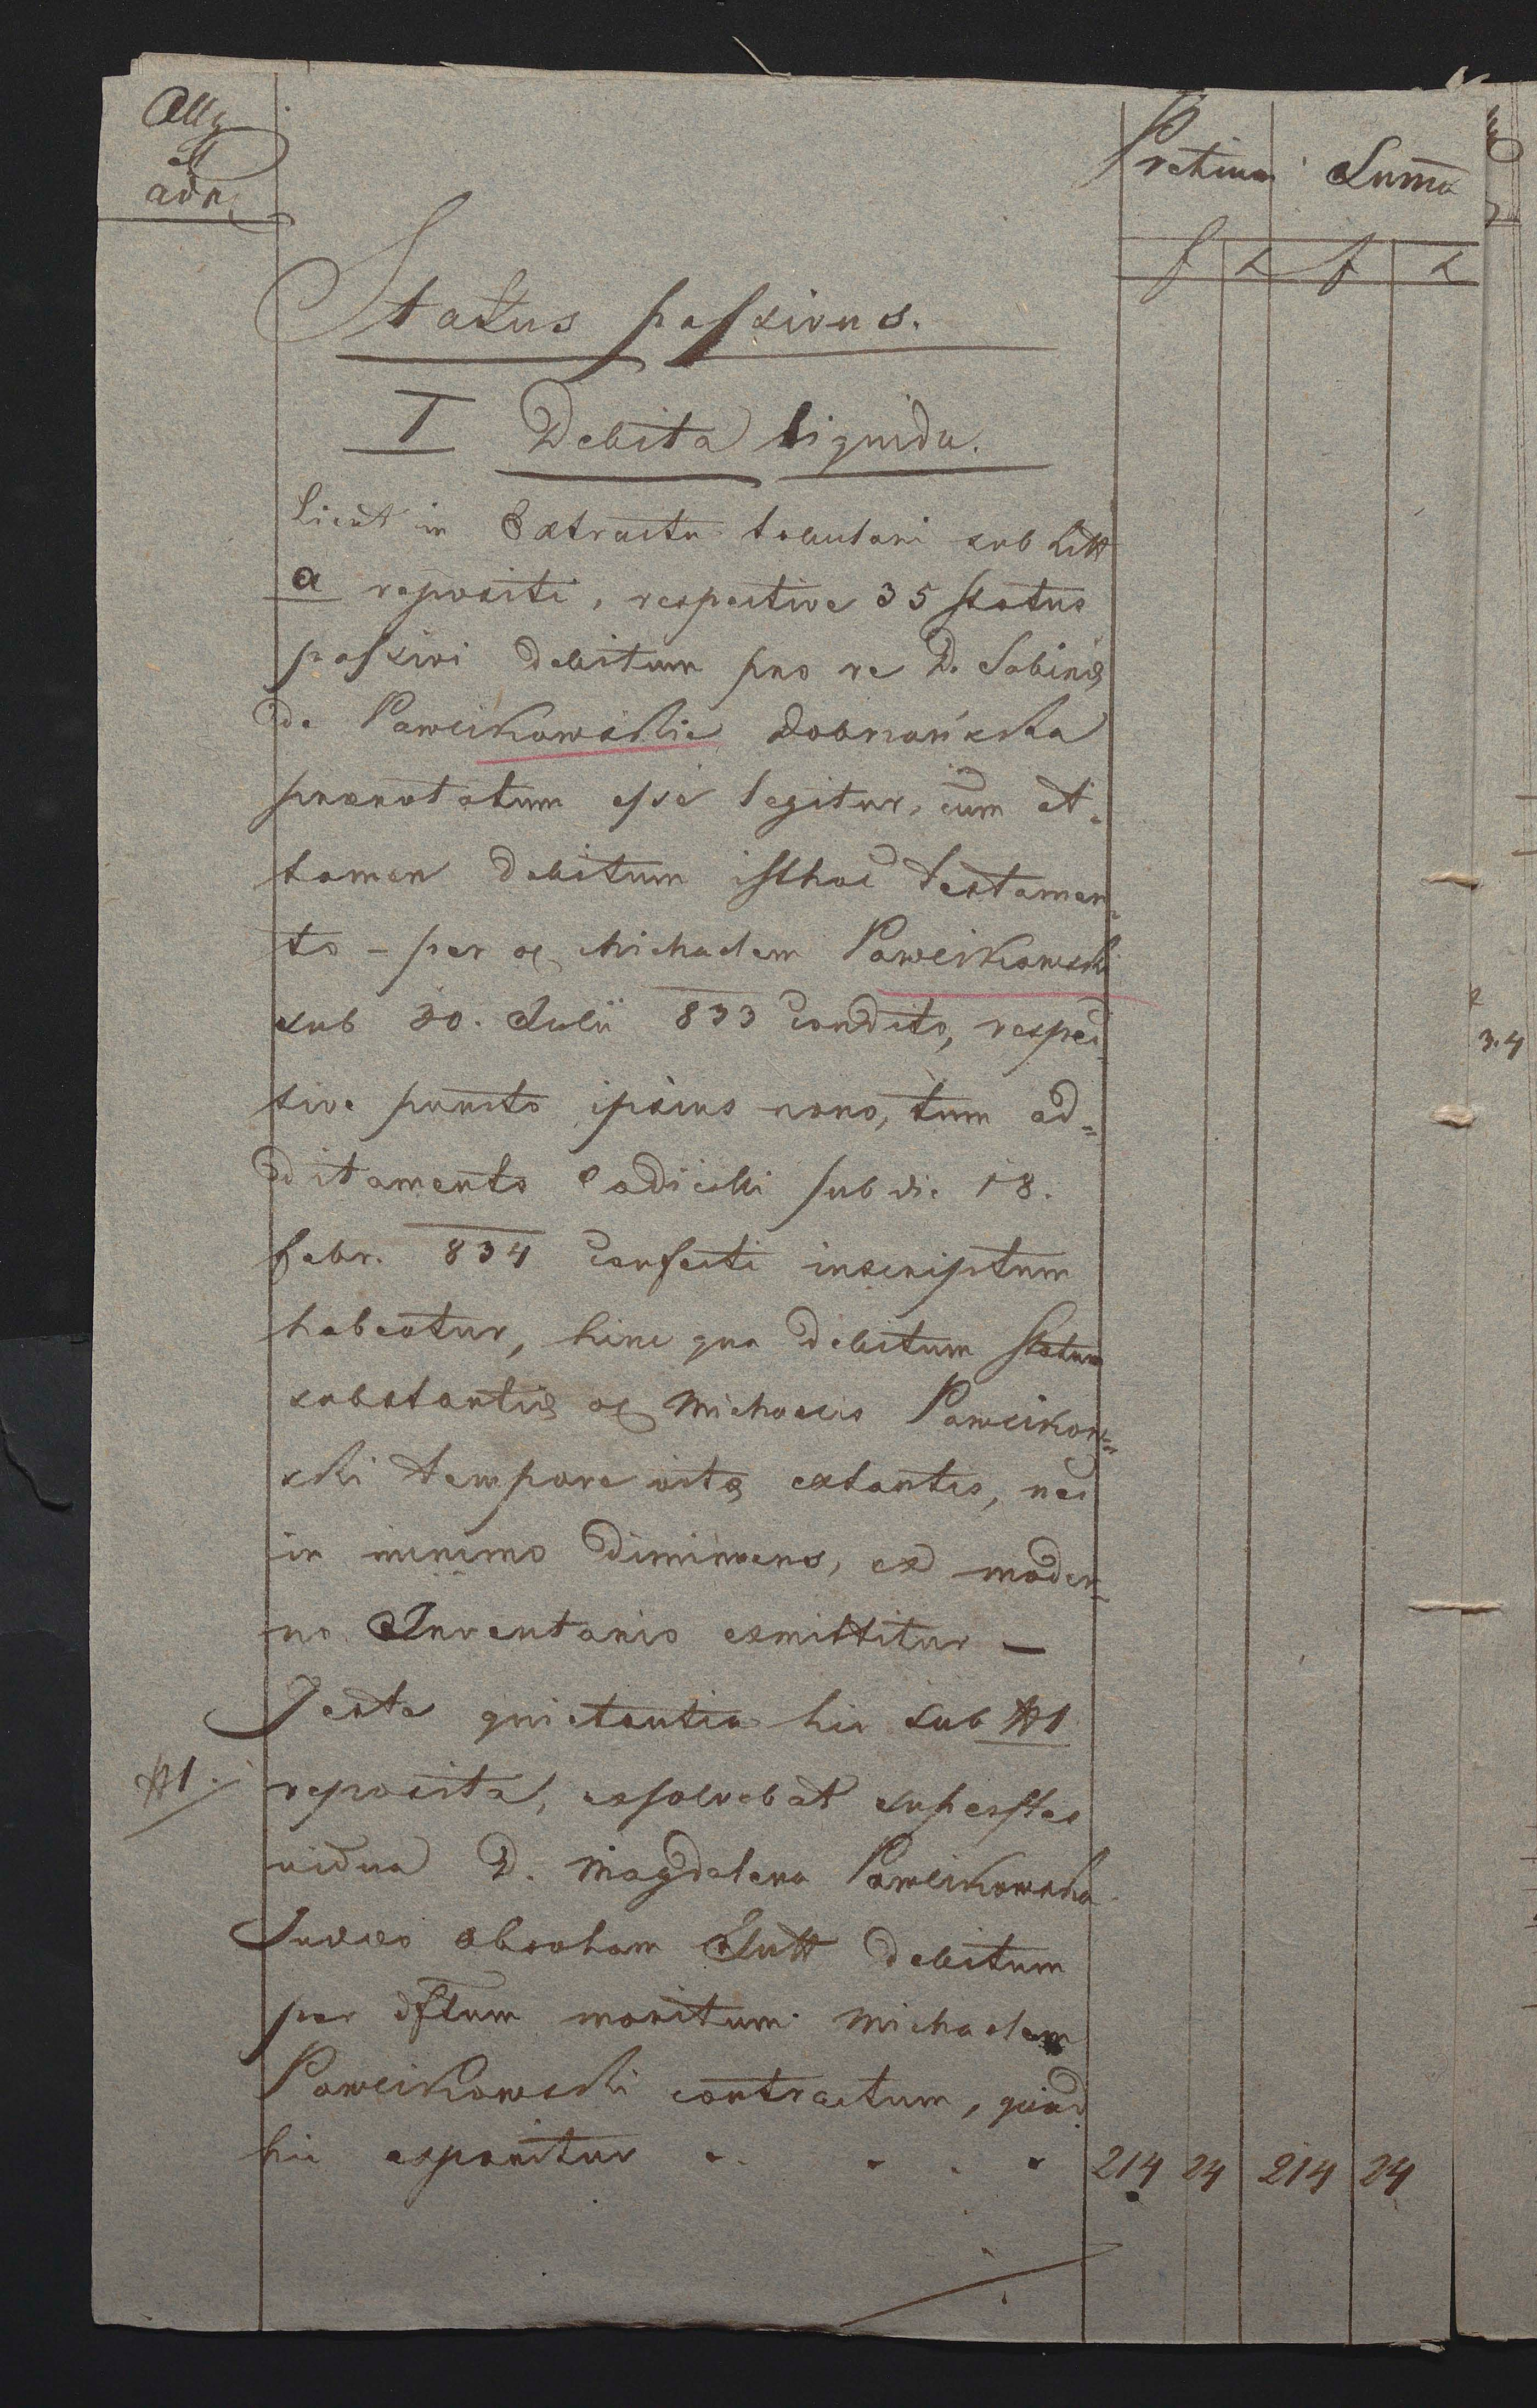 Allg
et
adn
Pretium Sum̄a
f x f x
Status passivus.
I Debita liquida.
Licet in Extractu tabulari sub Litt
a repositi, respective 35 status
passivi debitum pro re D. Sabinæ
de Pawlikowskie Dobrzańska
prænotatum esse legitur, cum at-
tamen debitum isthoc testamen-
to – per Michaelem Pawlikowski
sub 30. Julii 833 condito, respec-
tive puncto ipsius nono, tum ad=
ditamento Codicilli sub die 18.
Febr. 834 confecti inscriptum
habeatur, hinc qua debitum statum
substantiæ Michaelis Pawlikow=
ski tempore vitæ extantis, nec
in minimo diminuens, ex moder-
no Inventario exmittitur —
Teste quietantia hic sub N1
N1.
reposita, exsolvebat superstes
vidua D. Magdalena Pawlikowska
Judæo Abraham Gutt debitum
per dftum maritum Michaelem
Pawlikowski contractum, quod
hic exponitur . . . . 214 24 214 24
3.4